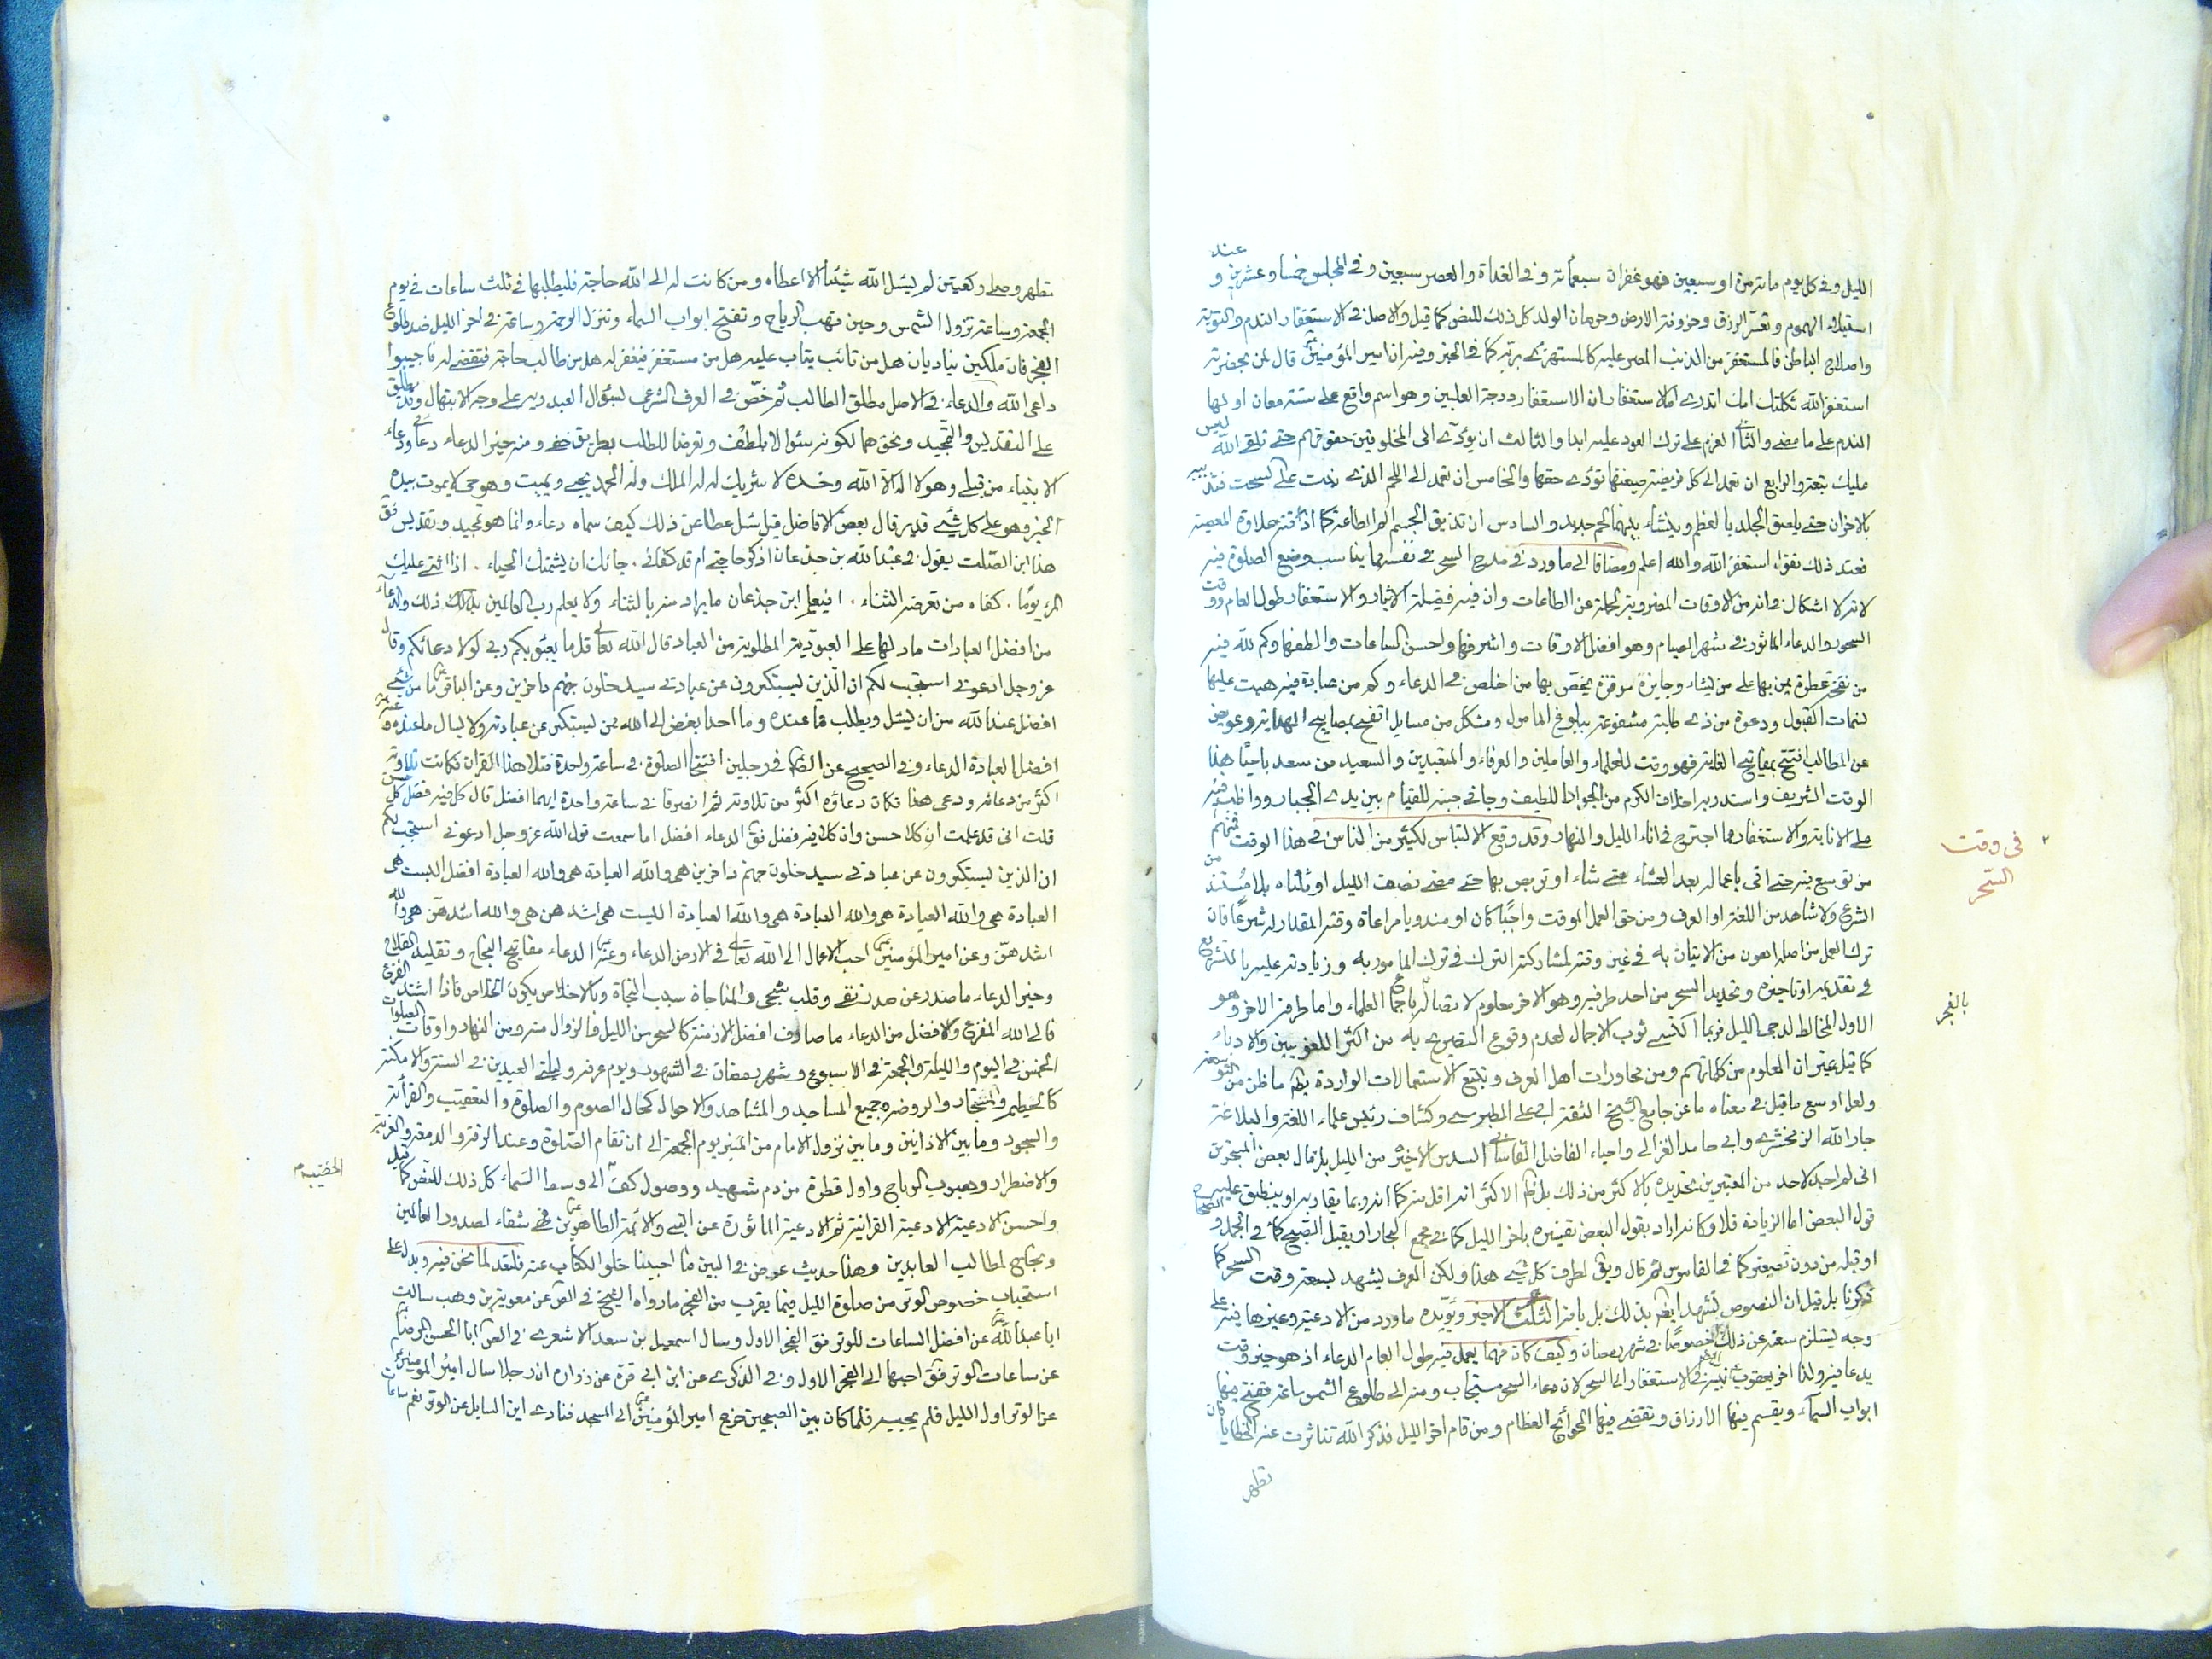 الليل وفى كل يوم مائة مرة او سبعين فهو غفران سبعمائة وفى الغداة والعصر سبعين وفى المجلس خمسا وعشرين و عند
استيلاء الهموم وتعسر الرزق وحزونة الارض وحرمان الولد كل ذلك للنص كما قيل والاصل فى الاستغفار الندم والتوبة
واصلاح الباطن فالمستغفر من الذنب المصر عليه كالمستهزئ بربه كما فى الخبر وفيه ان امير المؤمنين قال لمن بحضرته
استغفر الله ثكلتك امك اتدرى ما الاستغفار ان الاستغفار درجة العليين وهو اسم واقع على ستة معان اولها
الندم على ما مضى والثانى العزم على ترك العود عليه ابدا والثالث ان يؤدى الى المخلوقين حقوقهم حتى تلقى الله ليس
عليك تبعة والرابع ان تعمد الى كل فريضة ضيعتها تؤدى حقها والخامس ان تعمد الى اللحم الذى نبت على السحت فتذيبه
بالاحزان حتى يلصق الجلد بالعظم وينشاء بينهما لحم جديد والسادس ان تذيق الجسم الم الطاعة كما اذقته حلاوة المعصية
فعند ذلك تقول استغفر الله والله اعلم ومضافا الى ما ورد فى مدح السحر فى نفسه بما يناسب وضع الصلوة فيه
لانه لا اشكال فى انه من الاوقات المضروبة لجملة من الطاعات وان فيه فضيلة الاثمار والاستغفار طول العام ووقت
السحور والدعاء الماثور فى شهر الصيام وهو افضل الاوقات واشرفها واحسن الساعات والطفها وكم لله فيه
من نفحة عطرة يمن بها على من يشاء وجايزة موفرة يختص بها من اخلص فى الدعاء وكم من عبادة فيه هبت عليها
نسمات القبول ودعوة من ذى طلبة مشفوعة ببلوغ المامول ومشكل من مسايل اتضح بمصابيح الهداية وعويص
عن المطالب افتتح بمفاتيح العناية فهو وقت للعلماء والعاملين والعرفاء والمتعبدين والسعيد من سعد باحياء هذا
الوقت الشريف واستدر به اخلاف الكرم من الجواد اللطيف وجافى جنبه للقيام بين يدى الجبار وواظب فيه
على الانابة والاستغفار مما اجترح فى اناء الليل والنهار وقد وقع الالتباس لكثير من الناس فى هذا الوقت فمنهم
من توسع فيه حتى اتى باعماله بعد العشاء متى شاء او تربص بها حتى مضى نصف الليل او ثلثاه بلا مستند من
الشرع ولا شاهد من اللغة او العرف ومن حق العمل الموقت واجبا كان او مندوبا مراعاة وقته المقدر له شرعا فان
ترك العمل من اصله اهون من الاتيان به فى غير وقته لمشاركته الترك فى ترك المامور به وزيادته عليه بالتشريع
فى تقديمه او تاخيره وتحديد السحر من احد طرفيه وهو الاخر معلوم لاتصاله باجماع العلماء واما طرفه الاخر وهو
الاول المخالط لدجى الليل فربما اكتسى ثوب الاجمال لعدم وقوع التصريح به من اكثر اللغويين والادباء
كما قيل غير ان المعلوم من كلماتهم ومن محاورات اهل العرف وتتبع الاستعمالات الواردة ما ظن من التوسعة
ولعل اوسع ما قيل فى معناه ما عن جامع الشيخ الثقة ابى على الطبرسى وكشاف رئيس علماء اللغة والبلاغة
جار الله الزمخشرى وابى حامد الغزالى واحياء الفاضل القاسانى السدس الاخير من الليل بل قال بعض المتبحرين
انى لم اجد لاحد من المعتبرين تحديده بالاكثر من ذلك بل الاكثر انه اقل منه كما انه ربما يقاربه او ينطبق عليه
قول البعض اما الزيادة فلا وكانه اراد بقول البعض تفسيره باخر الليل كما فى مجمع البحار او بقبل الصبح كما فى المجمل و الصحاح
او قبله من دون تضييق كما فى القاموس ثم قال ويق لطرف كل شىء هذا ولكن العرف يشهد لسعة وقت السحر كما
ذكرنا بل قيل ان النصوص تشهد بذلك بل بانه الثلث الاخير ويؤيده ما ورد من الادعية وغيرها فيه على
وجه يستلزم سعته عن ذلك خصوصا فى شهر رمضان وكيف كان فمهما يعمل فيه طول العام الدعاء اذ هو خير وقت
يدعا فيه ولذا اخر يعقوب لبنيه الاستغفار الى السحر لان دعاء السحر مستجاب ومنه الى طلوع الشمس ساعة تفتح فيها
ابواب السماء ويقسم فيها الارزاق وتقضى فيها الحوائج العظام ومن قام اخر الليل فذكر الله تناثرت عنه الخطايا
تطهر
فى وقت
السحر
بالفجر
تطهر وصلى ركعتين لم يسئل الله شيئا الا اعطاه ومن كانت له الى الله حاجة فليطلبها فى ثلث ساعات فى يوم
الجمعة وساعة تزول الشمس وحين تهب الرياح وتفتح ابواب السماء وتنزل الرحمة وساعة فى اخر الليل عند طلوع
الفجر فان ملكين يناديان هل من تائب يتاب عليه هل من مستغفر فيغفر له هل من طالب حاجة فتقضى له فاجيبوا
داعى الله والدعاء فى الاصل مطلق الطالب ثم خص فى العرف الشرعى بسؤال العبد ربه على وجه الابتهال وقد يطلق
على التقديس والتمجيد ونحوهما لكونه سئوالا بلطف وتعرضا للطلب بطريق خفى ومنه خير الدعاء دعائى ودعاء
الانبياء من قبلى وهو لا اله الا الله وحده لا شريك له له الملك وله الحمد يحيى ويميت وهو حى لا يموت بيده
الخير وهو على كل شىء قدير قال بعض الافاضل قيل سئل عطا عن ذلك كيف سماه دعاء وانما هو تمجيد وتقديس فق
هذا ابن الصلت يقول فى عبد الله بن جذعان اذكر حاجتى ام قد كفانى . حيائك ان شيمتك الحياء . اذا اثنى عليك
المرء يوما . كفاه من تعرضه الثناء . افيعلم ابن جذعان ما يراد منه بالثناء ولا يعلم رب العالمين بذلك والدعاء
من افضل العبادات ما دلها على العبودية المطلوبة من العباد قال الله تعالى قل ما يعبؤ بكم ربى لولا دعائكم وقال
عز وجل ادعونى استجب لكم ان الذين يستكبرون عن عبادتى سيدخلون جهنم داخرين وعن الباقر ما من شىء
افضل عند الله من ان يسئل ويطلب مما عنده وما احد ابغض الى الله ممن يستكبر عن عبادته ولا يسال ما عنده و عنه
افضل العبادة الدعاء وفى الصحيح عن الصادق فى رجلين افتتحا الصلوة فى ساعة واحدة فتلا هذا القران فكانت تلاوته
اكثر من دعائه ودعى هذا فكان دعاؤه اكثر من تلاوته ثم انصرفا فى ساعة واحدة ايهما افضل قال كل فيه فضل كل حسن
قلت انى قد علمت ان كلا حسن وان كلا فيه فضل فق الدعاء افضل اما سمعت قول الله عز وجل ادعونى استجب لكم
ان الذين يستكبرون عن عبادتى سيدخلون جهنم داخرين هى والله العبادة هى والله العبادة افضل اليست هى
العبادة هى والله العبادة هى والله العبادة هى والله العبادة اليست هى اشدهن هى والله اشدهن هى والله
اشدهن وعن امير المؤمنين احب الاعمال الى الله تعالى فى الارض الدعاء وعنه الدعاء مفاتيح النجاح وتقاليد الفلاح
وخير الدعاء ما صدر عن صدر نقى وقلب تقى وفى المناجاة سبب النجاة وبالاخلاص يكون الخلاص فاذا اشتد الفزع
فالى الله المفزع والافضل من الدعاء ما صادف افضل الازمنة كالسحر من الليل والزوال منه ومن النهار واوقات الصلوات
الخمس فى اليوم والليلة والجمعة فى الاسبوع وشهر رمضان فى الشهور ويوم عرفة وليلتى العيدين فى السنة والامكنة
كالحطيم والمستجار والروضة وجميع المساجد والمشاهد والاحوال كحال الصوم والصلوة والتعقيب والقرائة
والسجود وما بين الاذانين وما بين نزول الامام من المنبر يوم الجمعة الى ان تقام الصلوة وعند الرقة والدمعة والغربة
والاضطرار وهبوب الرياح واول قطرة من دم شهيد ووصول كف الى وسط السماء كل ذلك للنص كما قيل
واحسن الادعية الادعية القرانية ثم الادعية الماثورة عن النبى والائمة الطاهرين فهى شفاء لصدور العالمين
ونجاح لمطالب العابدين وهذا حديث عرض فى البين ما احببنا خلو الكتاب عنه فلنعد لما نحن فيه ويدل على
استحباب خصوص الوتر من صلوة الليل فيما يقرب من الفجر ما رواه الشيخ فى الص عن معوية بن وهب سالت
ابا عبد الله عن افضل الساعات للوتر فق الفجر الاول وسال اسمعيل بن سعد الاشعرى فى الص ابا الحسن الرضا
عن ساعات الوتر فق احبها الى الفجر الاول وفى الذكرى عن ابن ابى قرة عن زرارة ان رجلا سال امير المومنين
عن الوتر اول الليل فلم يجبه فلما كان بين الصبحين خرج امير المؤمنين الى المسجد فنادى اين السايل عن الوتر نعم ساعات